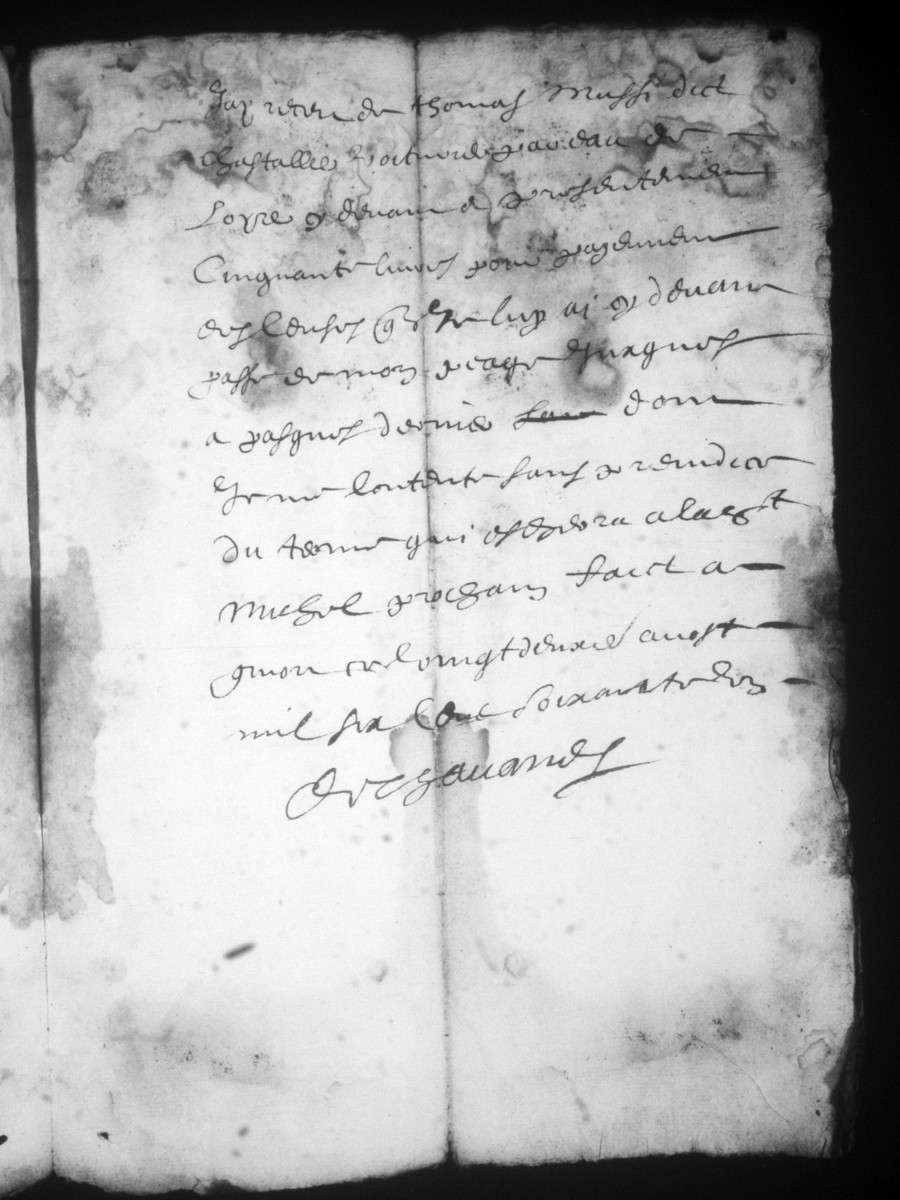 Jay receu de thomas Mussi dict
chastallier voiturier par eau de
Loyre cy devant et presentement
Cinquante livres pour payement
des que Je luy ai cy devant
passe de mon peage
a pasques dernier dont
Je me contente sans preiudice
du terme qui eschera a la st
Michel prochain faict a
ce vingtdeuxie aoust
mil six cent soixante